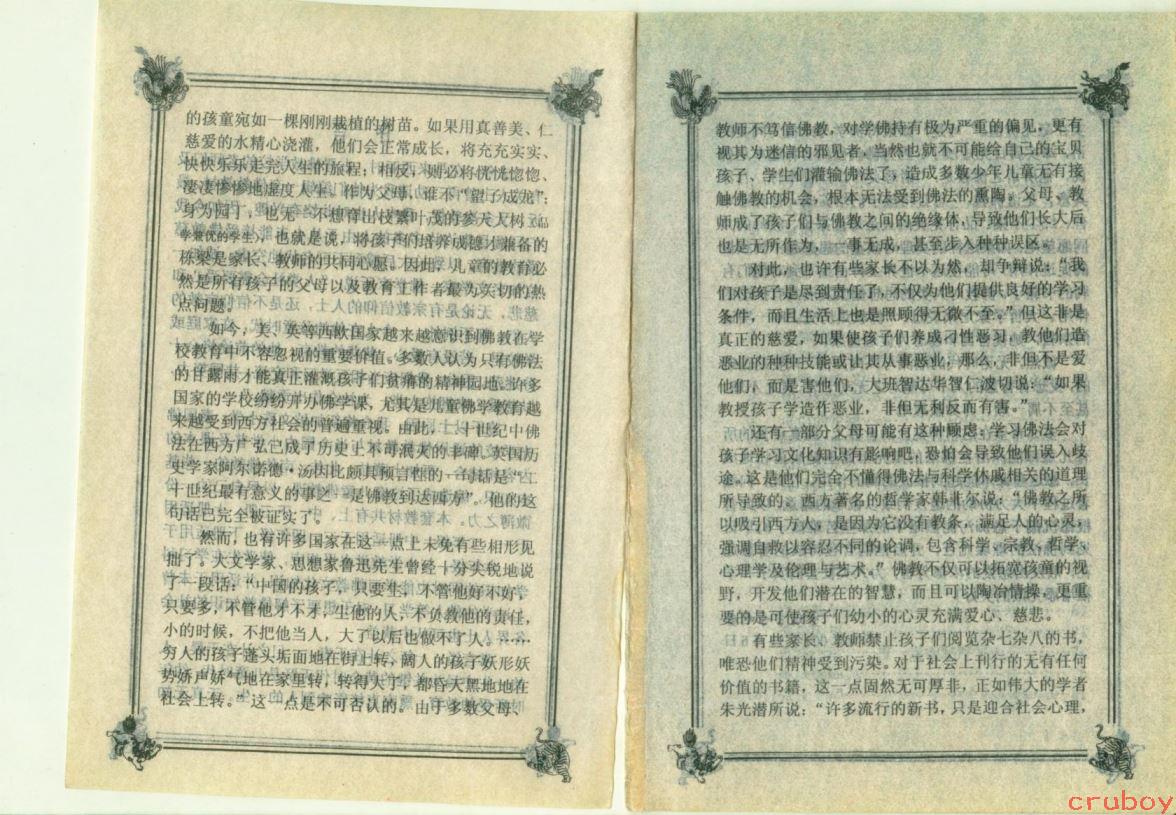 的孩童宛如一棵刚刚栽植的树苗。如果用真善美、仁
慈爱的水精心浇灌，他们会正常成长，将充充实实、
快快乐乐走完人生的旅程；相反，则必将恍恍惚惚、
凄凄惨惨地虚度人生。作为父母，谁不“望子成龙”；
身为园丁，也无一不想育出枝繁叶茂的参天大树（品
学兼优的学生），也就是说，将孩子们培养成德才兼备的
栋梁是家长、教师的共同心愿。因此，儿童的教育必
然是所有孩子的父母以及教育工作者最为关切的热
点问题。
如今，美、英等西欧国家越来越意识到佛教在学
校教育中不容忽视的重要价值。多数人认为只有佛法
的甘露雨才能真正灌溉孩子们贫瘠的精神园地。许多
国家的学校纷纷开办佛学课，尤其是儿童佛学教育越
来越受到西方社会的普遍重视。由此，二十世纪中佛
法在西方广弘已成了历史上不可泯灭的丰碑。英国历
史学家阿尔诺德·汤因比颇具预言性的一句话是“二
十世纪最有意义的事之一是佛教到达西方”。他的这
句话已完全被证实了。
然而，也有许多国家在这一点上未免有些相形见
拙了。大文学家、思想家鲁迅先生曾经十分尖锐地说
了一段话：“中国的孩子，只要生，不管他好不好，
只要多，不管他才不才，生他的人，不负教他的责任，
小的时候，不把他当人，大了以后也做不了人。……
穷人的孩子蓬头垢面地在街上转，阔人的孩子妖形妖
势娇声娇气地在家里转，转得大了，都昏天黑地地在
社会上转。”这一点是不可否认的。由于多数父母、
教师不笃信佛教，对学佛持有极为严重的偏见，更有
视其为迷信的邪见者，当然也就不可能给自己的宝贝
孩子、学生们灌输佛法了，造成多数少年儿童无有接
触佛教的机会，根本无法受到佛法的熏陶。父母、教
师成了孩子们与佛教之间的绝缘体，导致他们长大后
也是无所作为，一事无成，甚至步入种种误区。
对此，也许有些家长不以为然，却争辩说：“我
们对孩子是尽到责任了，不仅为他们提供良好的学习
条件，而且生活上也是照顾得无微不至。”但这并非是
真正的慈爱，如果使孩子们养成刁性恶习，教他们造
恶业的种种技能或让其从事恶业，那么，非但不是爱
他们，而是害他们，大班智达华智仁波切说：“如果
教授孩子学造作恶业，非但无利反而有害。”
还有一部分父母可能有这种顾虑：学习佛法会对
孩子学习文化知识有影响吧，恐怕会导致他们误入歧
途。这是他们完全不懂得佛法与科学休戚相关的道理
所导致的。西方著名的哲学家韩非尔说：“佛教之所
以吸引西方人，是因为它没有教条，满足人的心灵，
强调自救以容忍不同的论调，包含科学、宗教、哲学、
心理学及伦理与艺术。”佛教不仅可以拓宽孩童的视
野，开发他们潜在的智慧，而且可以陶冶情操，更重
要的是可使孩子们幼小的心灵充满爱心、慈悲。
有些家长、教师禁止孩子们阅览杂七杂八的书，
唯恐他们精神受到污染。对于社会上刊行的无有任何
价值的书籍，这一点固然无可厚非，正如伟大的学者
朱光潜所说：“许多流行的新书，只是迎合社会心理，
cruboy